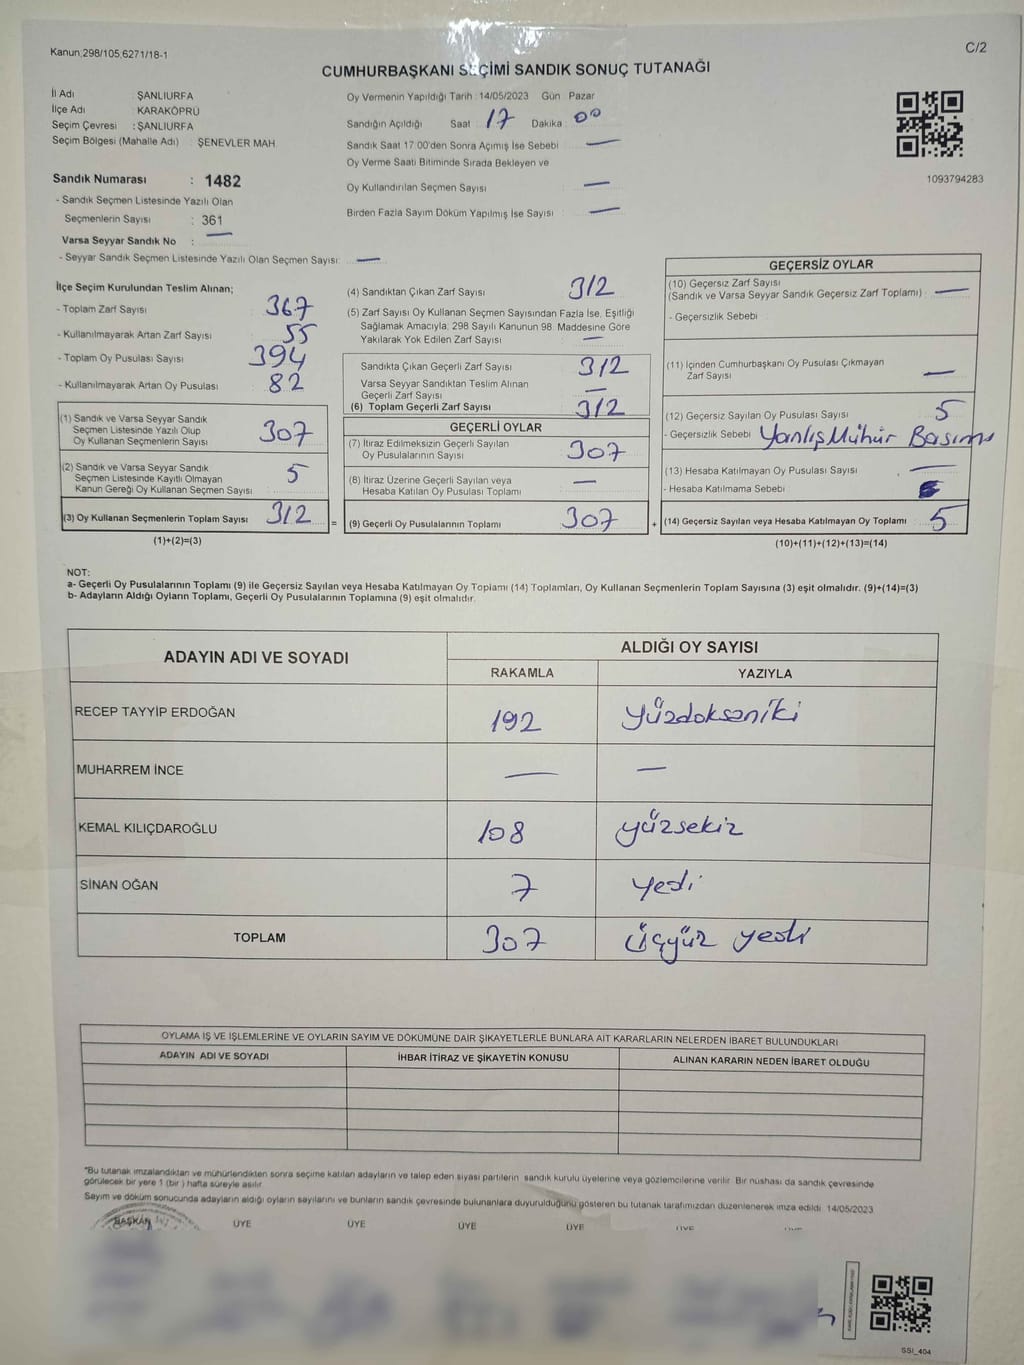 Kanun;298/105,6271/18-1
C/2
CUMHURBAŞKANI SEÇİMİ SANDIK SONUÇ TUTANAĞI
İl Adı : ŞANLIURFA
İlçe Adı : KARAKÖPRÜ
Seçim Çevresi : ŞANLIURFA
Seçim Bölgesi (Mahalle Adı) : ŞENEVLER MAH.
Sandık Numarası : 1482
- Sandık Seçmen Listesinde Yazılı Olan
Seçmenlerin Sayısı : 361
Varsa Seyyar Sandık No : —
- Seyyar Sandık Seçmen Listesinde Yazılı Olan Seçmen Sayısı: —
Oy Vermenin Yapıldığı Tarih : 14/05/2023 Gün : Pazar
Sandığın Açıldığı Saat : 17 Dakika : 00
Sandık Saat 17:00'den Sonra Açılmış İse Sebebi : —
Oy Verme Saati Bitiminde Sırada Bekleyen ve
Oy Kullandırılan Seçmen Sayısı : —
Birden Fazla Sayım Döküm Yapılmış İse Sayısı : —
1093794283
İlçe Seçim Kurulundan Teslim Alınan;
- Toplam Zarf Sayısı : 367
- Kullanılmayarak Artan Zarf Sayısı : 55
- Toplam Oy Pusulası Sayısı : 394
- Kullanılmayarak Artan Oy Pusulası : 82
(1) Sandık ve Varsa Seyyar Sandık
Seçmen Listesinde Yazılı Olup
Oy Kullanan Seçmenlerin Sayısı : 307
(2) Sandık ve Varsa Seyyar Sandık
Seçmen Listesinde Kayıtlı Olmayan
Kanun Gereği Oy Kullanan Seçmen Sayısı : 5
(3) Oy Kullanan Seçmenlerin Toplam Sayısı : 312
(1)+(2)=(3)
(4) Sandıktan Çıkan Zarf Sayısı : 312
(5) Zarf Sayısı Oy Kullanan Seçmen Sayısından Fazla İse, Eşitliği
Sağlamak Amacıyla; 298 Sayılı Kanunun 98. Maddesine Göre
Yakılarak Yok Edilen Zarf Sayısı : —
Sandıkta Çıkan Geçerli Zarf Sayısı : 312
Varsa Seyyar Sandıktan Teslim Alınan
Geçerli Zarf Sayısı : —
(6) Toplam Geçerli Zarf Sayısı : 312
GEÇERLİ OYLAR
(7) İtiraz Edilmeksizin Geçerli Sayılan
Oy Pusulalarının Sayısı : 307
(8) İtiraz Üzerine Geçerli Sayılan veya
Hesaba Katılan Oy Pusulası Toplamı : —
= (9) Geçerli Oy Pusulalarının Toplamı : 307 +
GEÇERSİZ OYLAR
(10) Geçersiz Zarf Sayısı
(Sandık ve Varsa Seyyar Sandık Geçersiz Zarf Toplamı) : —
- Geçersizlik Sebebi :
(11) İçinden Cumhurbaşkanı Oy Pusulası Çıkmayan
Zarf Sayısı : —
(12) Geçersiz Sayılan Oy Pusulası Sayısı : 5
- Geçersizlik Sebebi : Yanlış Mühür Basımı
(13) Hesaba Katılmayan Oy Pusulası Sayısı : —
- Hesaba Katılmama Sebebi :
(14) Geçersiz Sayılan veya Hesaba Katılmayan Oy Toplamı : 5
(10)+(11)+(12)+(13)=(14)
NOT:
a- Geçerli Oy Pusulalarının Toplamı (9) ile Geçersiz Sayılan veya Hesaba Katılmayan Oy Toplamı (14) Toplamları, Oy Kullanan Seçmenlerin Toplam Sayısına (3) eşit olmalıdır. (9)+(14)=(3)
b- Adayların Aldığı Oyların Toplamı, Geçerli Oy Pusulalarının Toplamına (9) eşit olmalıdır.
ADAYIN ADI VE SOYADI
ALDIĞI OY SAYISI
RAKAMLA YAZIYLA
RECEP TAYYİP ERDOĞAN 192 Yüzdoksaniki
MUHARREM İNCE — —
KEMAL KILIÇDAROĞLU 108 yüzsekiz
SİNAN OĞAN 7 yedi
TOPLAM 307 üçyüz yedi
OYLAMA İŞ VE İŞLEMLERİNE VE OYLARIN SAYIM VE DÖKÜMÜNE DAİR ŞİKAYETLERLE BUNLARA AİT KARARLARIN NELERDEN İBARET BULUNDUKLARI
ADAYIN ADI VE SOYADI İHBAR İTİRAZ VE ŞİKAYETİN KONUSU ALINAN KARARIN NEDEN İBARET OLDUĞU
*Bu tutanak imzalandıktan ve mühürlendikten sonra seçime katılan adayların ve talep eden siyasi partilerin sandık kurulu üyelerine veya gözlemcilerine verilir. Bir nüshası da sandık çevresinde
görülecek bir yere 1 (bir) hafta süreyle asılır.
Sayım ve döküm sonucunda adayların aldığı oyların sayılarını ve bunların sandık çevresinde bulunanlara duyurulduğunu gösteren bu tutanak tarafımızdan düzenlenerek imza edildi. 14/05/2023
BAŞKAN ÜYE ÜYE ÜYE ÜYE ÜYE
SSI_404